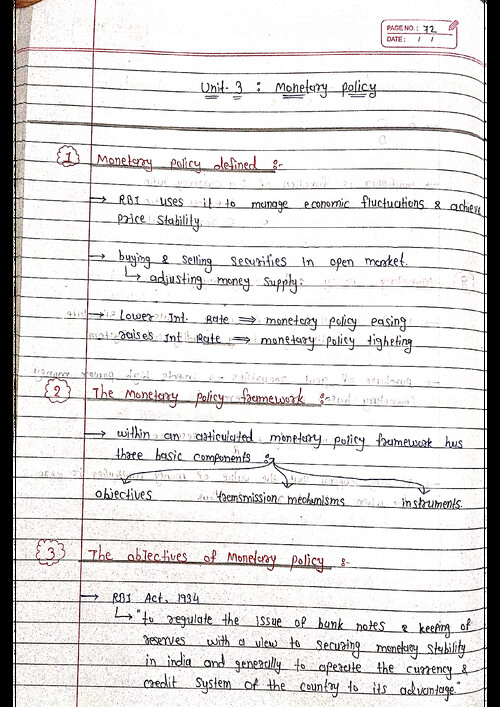 PAGE NO.: 72
DATE: / /
Unit. 3 : Monetary policy
1 Monetary policy defined :-
→ RBI uses it to manage economic fluctuations & achieve
price stability.
→ buying & selling securities in open market.
↳ adjusting money supply.
→ Lower Int. Rate ⇒ monetary policy easing
raises Int Rate ⇒ monetary policy tighting
2 The Monetary policy framework :-
→ within an articulated monetary policy framework has
three basic components :-
objectives transmission mechanisms instruments.
3 The objectives of Monetary policy :-
→ RBI Act, 1934
↳ "to regulate the issue of bank notes & keeping of
reserves with a view to securing monetary stability
in india and generally to operate the currency &
credit system of the country to its advantage."